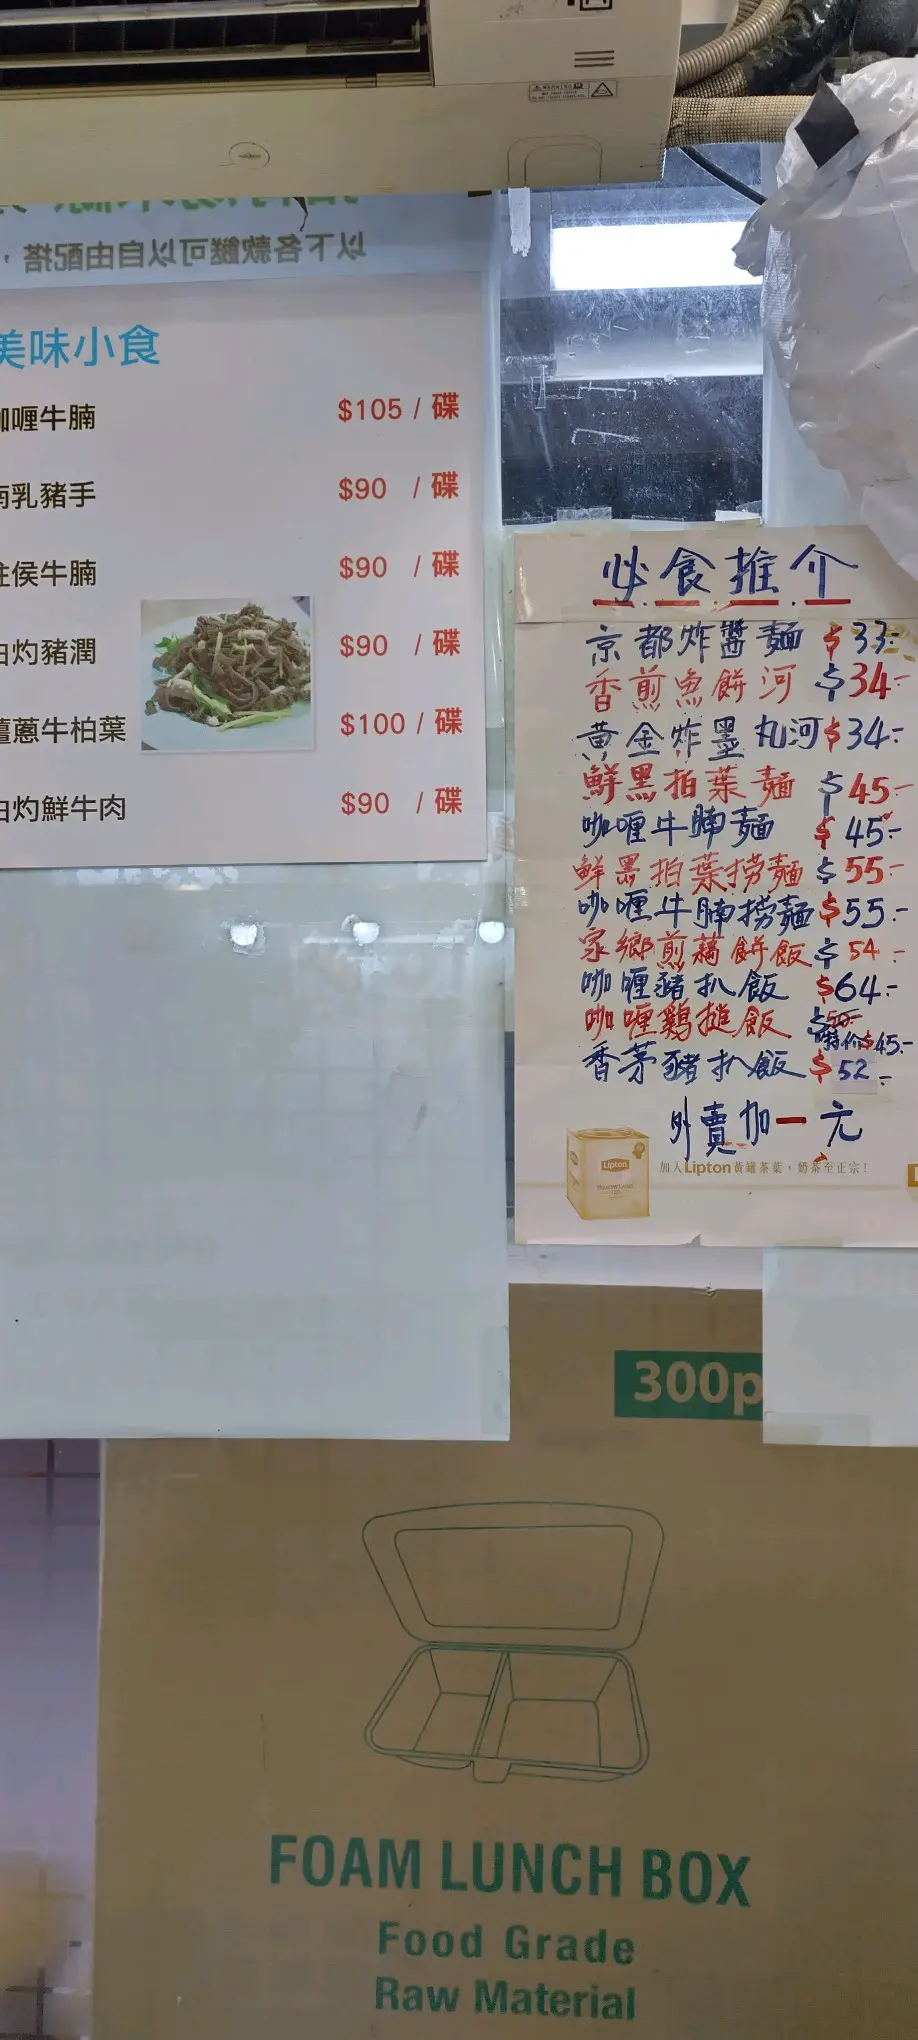 以下各款餸可以自由配搭，
美味小食
咖喱牛腩 $105 / 碟
南乳豬手 $90 / 碟
柱侯牛腩 $90 / 碟
白灼豬潤 $90 / 碟
薑蔥牛柏葉 $100 / 碟
白灼鮮牛肉 $90 / 碟
必食推介
京都炸醬麵 $33.-
香煎魚餅河 $34.-
黃金炸墨丸河 $34.-
鮮黑柏葉麵 $45.-
咖喱牛腩麵 $45.-
鮮黑柏葉撈麵 $55.-
咖喱牛腩撈麵 $55.-
家鄉煎藕餅飯 $54.-
咖喱豬扒飯 $64.-
咖喱鷄搥飯 $50.- 特价$45.-
香茅豬扒飯 $52.-
外賣加一元
Lipton
加入Lipton黃罐茶葉，奶茶至正宗！
300p
FOAM LUNCH BOX
Food Grade
Raw Material